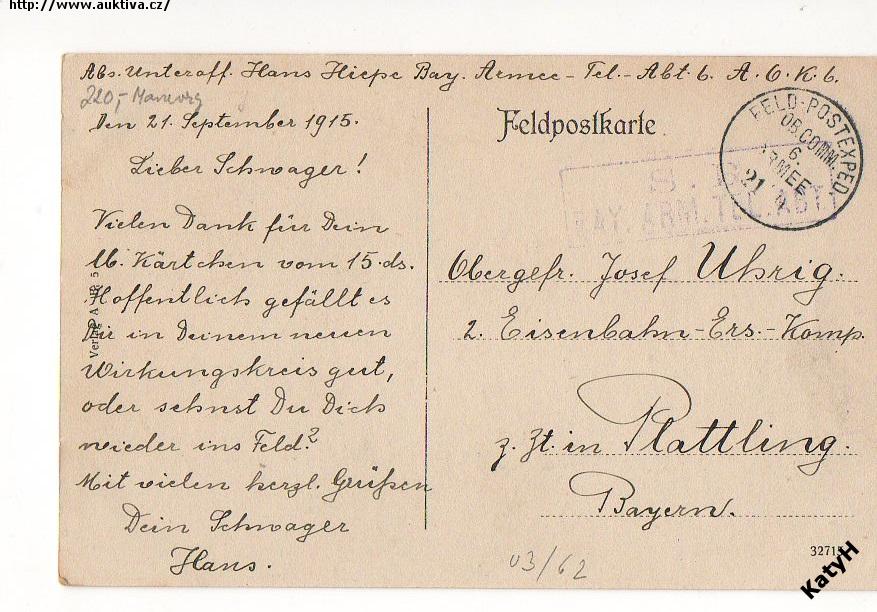 http://www.auktiva.cz/
Abs. Unteroff. Hans Hiepe Bay. Armee-Tel.-Abt. 6 A.O.K. 6.
220,-
Den 21. September 1915.
Lieber Schwager!
Vielen Dank für Dein
lb. Kärtchen vom 15. ds.
Hoffentlich gefällt es
Dir in Deinem neuen
Wirkungskreis gut,
oder sehnst Du Dich
wieder ins Feld?
Mit vielen herzl. Grüßen
Dein Schwager
Hans.
Feldpostkarte
FELD-POSTEXPED.
OB. COMM.
6.
ARMEE
21
S. B.
BAY. ARM. TEL. ABT.
Obergefr. Josef Uhrig.
2. Eisenbahn-Ers.-Komp.
z. Zt. in Plattling.
Bayern.
03/62
KatyH